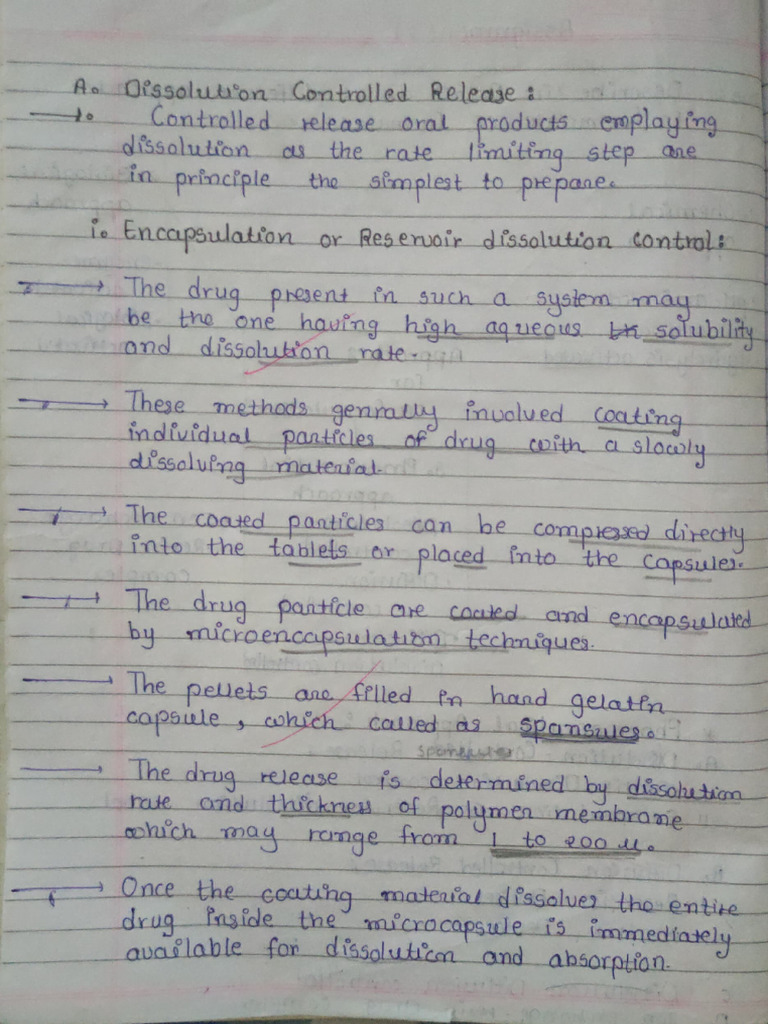 A. Dissolution Controlled Release :
Controlled release oral products employing
dissolution as the rate limiting step are
in principle the simplest to prepare.
i. Encapsulation or Reservoir dissolution control :
→ The drug present in such a system may
be the one having high aqueous solubility
and dissolution rate.
→ These methods genrally involved coating
individual particles of drug with a slowly
dissolving material.
→ The coated particles can be compressed directly
into the tablets or placed into the capsules.
→ The drug particle are coated and encapsulated
by microencapsulation techniques.
→ The pellets are filled in hard gelatin
capsule, which called as spansules.
→ The drug release is determined by dissolution
rate and thickness of polymer membrane
which may range from 1 to 200 μ.
→ Once the coating material dissolves the entire
drug inside the microcapsule is immediately
available for dissolution and absorption.